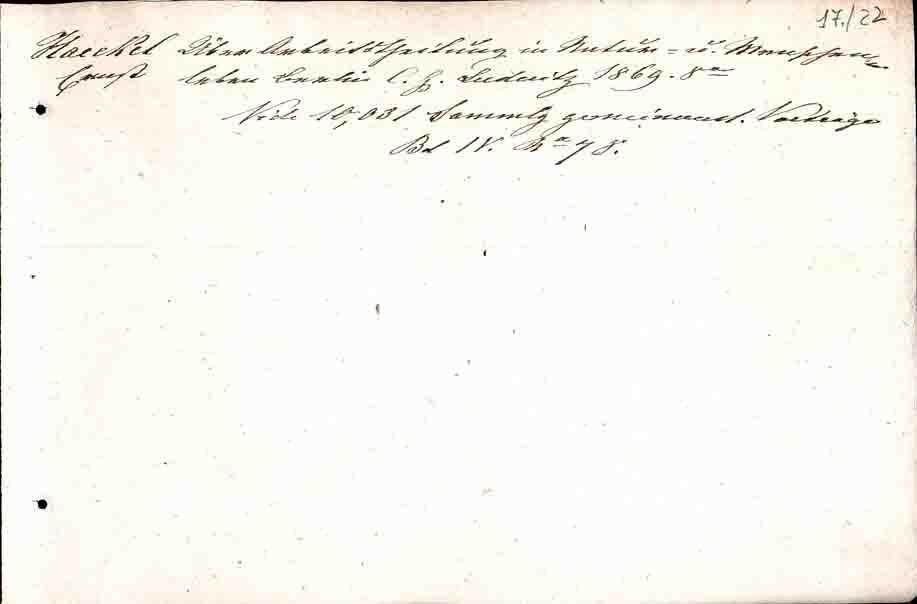 17./22
Haeckel Über Arbeitstheilung in Natur- u. Menschen-
Ernst leben Berlin C. G. Luderitz 1869. 8°
Vide 10,031 Sammlg gemeinverst. Vorträge
Bd IV. No 78.